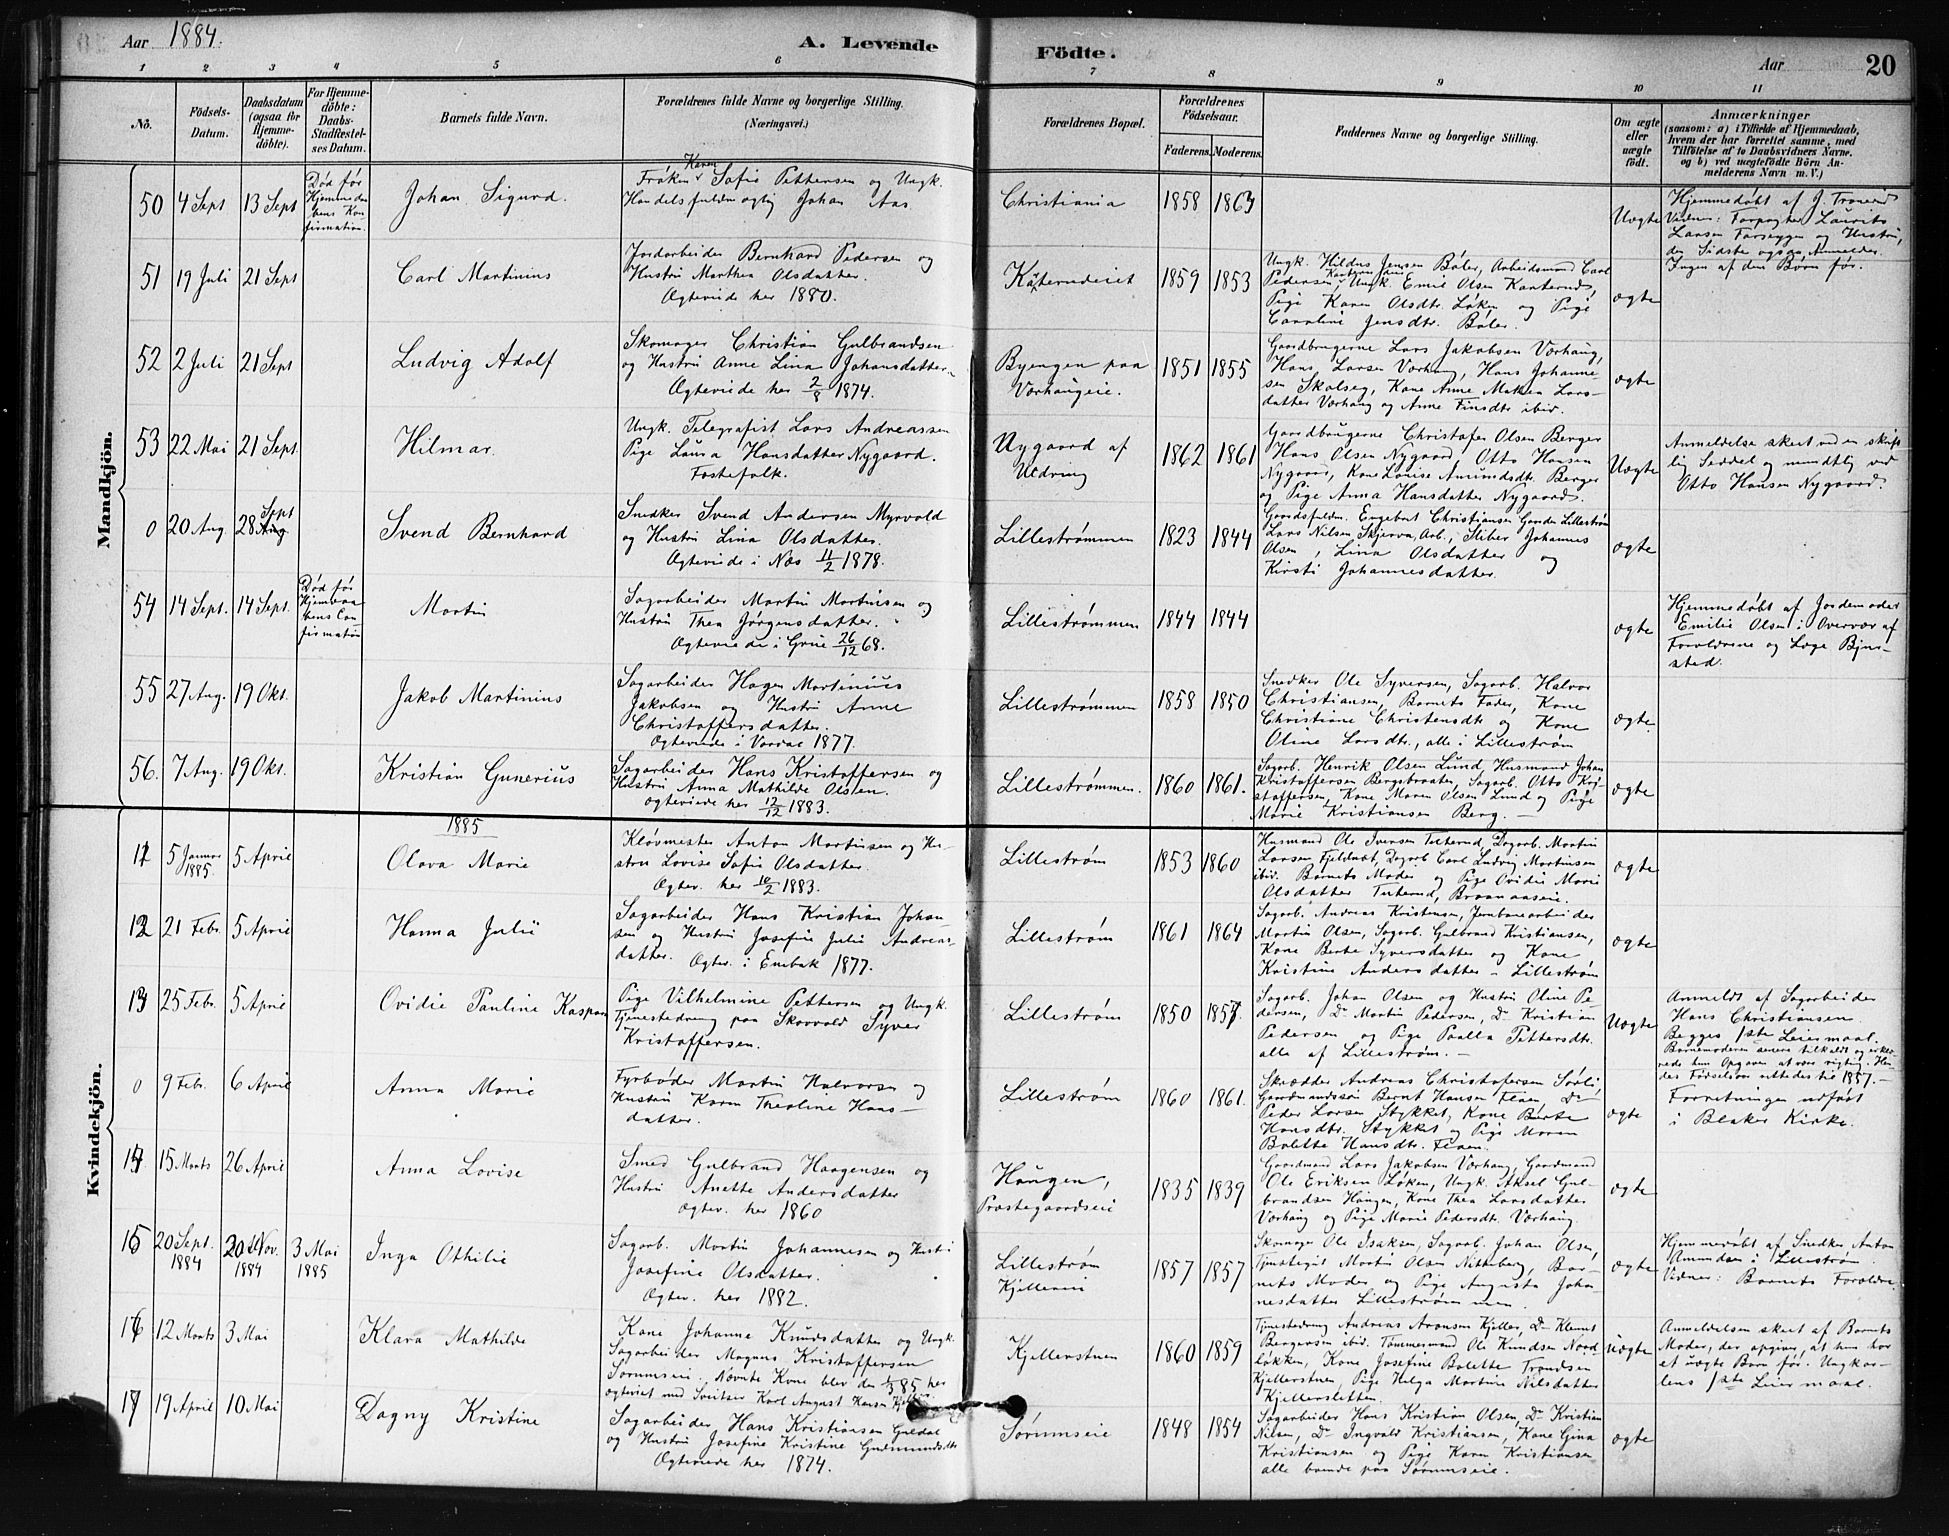 Aar 1884.
A. Levende
Födte.
Aar
20
1 2 3 4 5 6 7 8 9 10 11
No.
Födsels-
Datum.
Daabsdatum
(ogsaa for
Hjemme-
döbte).
For Hjemme-
döbte:
Daabs-
Stadfæstel-
ses Datum.
Barnets fulde Navn.
Forældrenes fulde Navne og borgerlige Stilling.
(Næringsvei.)
Forældrenes Bopæl.
Forældrenes
Födselsaar.
Faderens. Moderens.
Faddernes Navne og borgerlige Stilling.
Om ægte
eller
uægte
født.
Anmærkninger
(saasom: a) i Tilfælde af Hjemmedaab,
hvem der har forrettet samme, med
Tilföielse af to Daabsvidners Navne.
og b) ved uægtefödte Börn An-
melderens Navn m. V.)
Mandkjön.
50 4 Sept 13 Sept
Død før
Hjemmedaa-
bens Kon-
firmation.
Johan Sigurd.
Karen
Frøken Sofie Pettersen og Ungk.
Handelsfuldmægtig Johan Aas.
Christiania
1858 1863
Uægte
Hjemmedøbt af J. Tronerud
Vidner: Forpagter Laurits
Larsen Farseggen og Hustru,
den Sidste ogsaa Anmelder.
51 19 Juli 21 Sept
Carl Martinius
Jordarbeider Bernhard Pedersen og
Hustru Marthea Olsdatter.
Ægteviede her 1880.
Katerudeiet
1859 1853
Ungk. Hildus Jensen Bøler, Arbeidsmand Carl
Pedersen, Ungk. Emil Olsen Katerud,
Pige Karen Olsdtr. Løken og Pige
Caroline Jensdtr. Bøler.
ægte
Ingen af dem Børn før.
52 2 Juli 21 Sept
Ludvig Adolf
Skomager Christian Gulbrandsen
og Hustru Anne Lina Johansdatter
Ægteviede her 2/8 1874.
Byengen paa
Vorhaugeie.
1851 1855
Gaardbrugerne Lars Jakobsen Vorhaug,
Hans Larsen Vorhaug, Hans Johanne-
sen Skolseg, Kone Anne Mathea Lars-
datter Vorhaug og Anne Finsdtr ibid.
ægte
53 22 Mai 21 Sept
Hilmar.
Ungk. Telegrafist Lars Andreassen
Pige Laura Hansdatter Nygaard.
Fostefolk.
Nygaard af
Uldring
1862 1861
Gaardbrugerne Christofer Olsen Berger
Hans Olsen Nygaard, Otto Hansen
Nygaard, Kone Louise Amundsdtr. Berger
og Pige Anna Hansdatter Nygaard.
Uægte
Anmeldelse skeet ved en skrift
lig Seddel og mundtlig ved
Otto Hansen Nygaard.
0 20 Aug. 28 Sept
Svend Bernhard
Snedker Svend Andersen Myrvold
og Hustru Lina Olsdatter.
Ægteviede i Næs 11/2 1878.
Lillestrømmen
1823 1844
Gaardsfuldm. Engebret Christiansen Gander Lillestrøm
Lars Nilsen Skjerva, Arb., Sliber Johannes
Olsen, Lina Olsdatter og
Kirsti Johannesdatter.
ægte
54 14 Sept. 14 Sept.
Død før
Hjemmedaa-
bens Con-
firmation
Martin
Sagarbeider Martin Martinsen og
Hustru Thea Jørgensdatter.
Ægteviede i Grue 26/12 68.
Lillestrømmen
1844 1844
ægte
Hjemmedøbt af Jordemoder
Emilie Olsen i Overvær af
Forældrene og Læge Bjør-
stad.
55 27 Aug. 19 Okt.
Jakob Martinius
Sagarbeider Hagen Martinius
Jakobsen og Hustru Anne
Christoffersdatter.
Ægteviede i Vardal 1877.
Lillestrømmen
1858 1850
Snedker Ole Syversen, Sagarb. Halvor
Christiansen, Barnets Fader, Kone
Christiane Christensdtr og Kone
Oline Larsdtr., alle i Lillestrøm
ægte
56. 7 Aug. 19 Okt.
Kristian Gunerius
Sagarbeider Hans Kristoffersen og
Hustru Anna Mathilde Olsen.
ægteviede her 12/12 1883.
Lillestrømmen.
1860 1861.
Sagarb. Henrik Olsen Lund Husmand Johan
Kristoffersen Bergsbraaten, Sagarb. Otto Kri-
stoffersen, Kone Maren Olsen Lund og Pige
Marie Kristiansen Berg.
ægte
Kvindekjön.
1885
11 5 Januar 1885. 5 April
Olava Marie
Kløvmester Anton Martinsen og Hu-
stru Lovise Sofie Olsdatter
Ægtev. her 10/2 1883.
Lillestrøm
1853 1860
Husmand Ole Iversen Tuterud, Dagarb. Martin
Larsen Fjeldnæt, Dagarb. Carl Ludvig Martinsen
ibid. Barnets Moder og Pige Ovidie Marie
Olsdatter Tuterud, Braanaaseie.
ægte
12 21 Febr. 5 April
Hanna Julie
Sagarbeider Hans Kristian Johan-
sen og Hustru Josefine Julie Andreas-
datter. Ægtev. i Enebak 1877.
Lillestrøm
1861 1864
Sagarb. Andreas Kristensen, Jernbanearbeider
Martin Olsen, Sagarb. Gulbrand Kristiansen,
Kone Berte Syversdatter og Kone
Kristine Andersdatter - Lillestrøm
ægte
13 25 Febr. 5 April
Ovidie Pauline Kaspara
Pige Vilhelmine Pettersen og Ungk.
Tjenestedreng paa Skarvold Syver
Kristoffersen.
Lillestrøm
1850 1857.
Sagarb. Johan Olsen og Hustru Oline Pe-
dersen, Do Martin Pedersen, Do Kristian
Pedersen og Pige Paalla Pettersdtr.
alle af Lillestrøm.
Uægte
Anmeldt af Sagarbeider
Hans Christiansen.
Begges 1ste Leiermaal.
Barnemoderen senere tilkaldt og erklæ-
rede sin Opgave at være rigtig. Hen-
des Fødselsaar rettedes til 1857.
0 9 Febr. 6 April
Anna Marie
Fyrbøder Martin Halvorsen og
Hustru Karen Theoline Hans-
datter.
Lillestrøm
1860 1861.
Skrædder Andreas Christofersen Sørli,
Gaardmandssøn Bernt Hansen Flaen Do
Peder Larsen Stykket, Kone Berte
Hansdtr. Stykket og Pige Maren
Bolette Hansdtr. Flaen.
ægte
Forretningen udført
i Blaker Kirke.
14 15 Marts 26 April
Anna Lovise
Smed Gulbrand Haagensen og
Hustru Anette Andersdatter
ægtev. her 1860
Haugen,
Præstegaardseie
1835 1839
Gaardmand Lars Jakobsen Vorhaug, Gaardmand
Ole Eriksen Løken, Ungk. Aksel Gul-
brandsen Haugen, Kone Thea Larsdatter
Vorhaug og Pige Marie Pedersdtr. Vorhaug.
ægte
15 20 Sept. 1884 20 Nov. 1884 3 Mai 1885
Inga Othilie
Sagarb. Martin Johannesen og Hustru
Josefine Olsdatter.
Ægtev. her 1882.
Lillestrøm
Kjellereie
1857 1857
Skomager Ole Isaksen, Sagarb. Johan Olsen,
Tjenstegut Martin Olsen Nitteberg, Bar-
nets Moder og Pige Augusta Johan-
nesdatter Lillestrømmen.
ægte
Hjemmedøbt af Snedker Anton
Amundsen i Lillestrøm.
Vidner: Barnets Forældre.
16 12 Marts 3 Mai
Klara Mathilde
Kone Johanne Knudsdatter og Ungk.
Sagarbeider Magnus Kristoffersen
Sørumseie. Nævnte Kone blev den 1/3 85 her
ægteviet med Sveitser Karl August Hansen Kjeller.
Kjellerstuen
1860 1859
Tjenestedreng Andreas Aronsen Kjeller, Do Klemet
Bergersen ibid. Tømmermand Ole Knudsen Nord-
løkken, Kone Josefine Bolette Trondsen
Kjellerstuen, Pige Helga Martine Nilsdatter
Kjellersletten.
uægte
Anmeldelsen skeet af Barnets
Moder, der opgiver, at hun har
et uægte Barn før. Ungkar-
lens 1ste Leiermaal.
17 19 April 10 Mai
Dagny Kristine
Sagarbeider Hans Kristiansen Guldal
og Hustru Josefine Kristine Gudmundsdtr
Ægteviede her 1874.
Sørumseie
1848 1854
Sagarbeider Hans Kristian Olsen, Do Kristian
Nilsen, Do Ingvald Kristiansen, Kone Gina
Kristiansen og Pige Karen Kristiansen
alle boende paa Sørumseie.
ægte